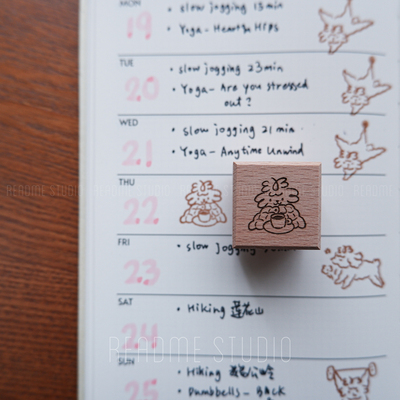 MON
19
• slow jogging 15 min
• Yoga - Heart & Hips
TUE
20
• slow jogging 23 min
• Yoga - Are you stressed
out?
WED
21
• slow jogging 21 min
• Yoga - Anytime Unwind
README STUDIO
THU
22
FRI
23
• slow jogging
SAT
24
• Hiking 蓮花山
README STUDIO
SUN
25
• Hiking
• Dumbbells - Back